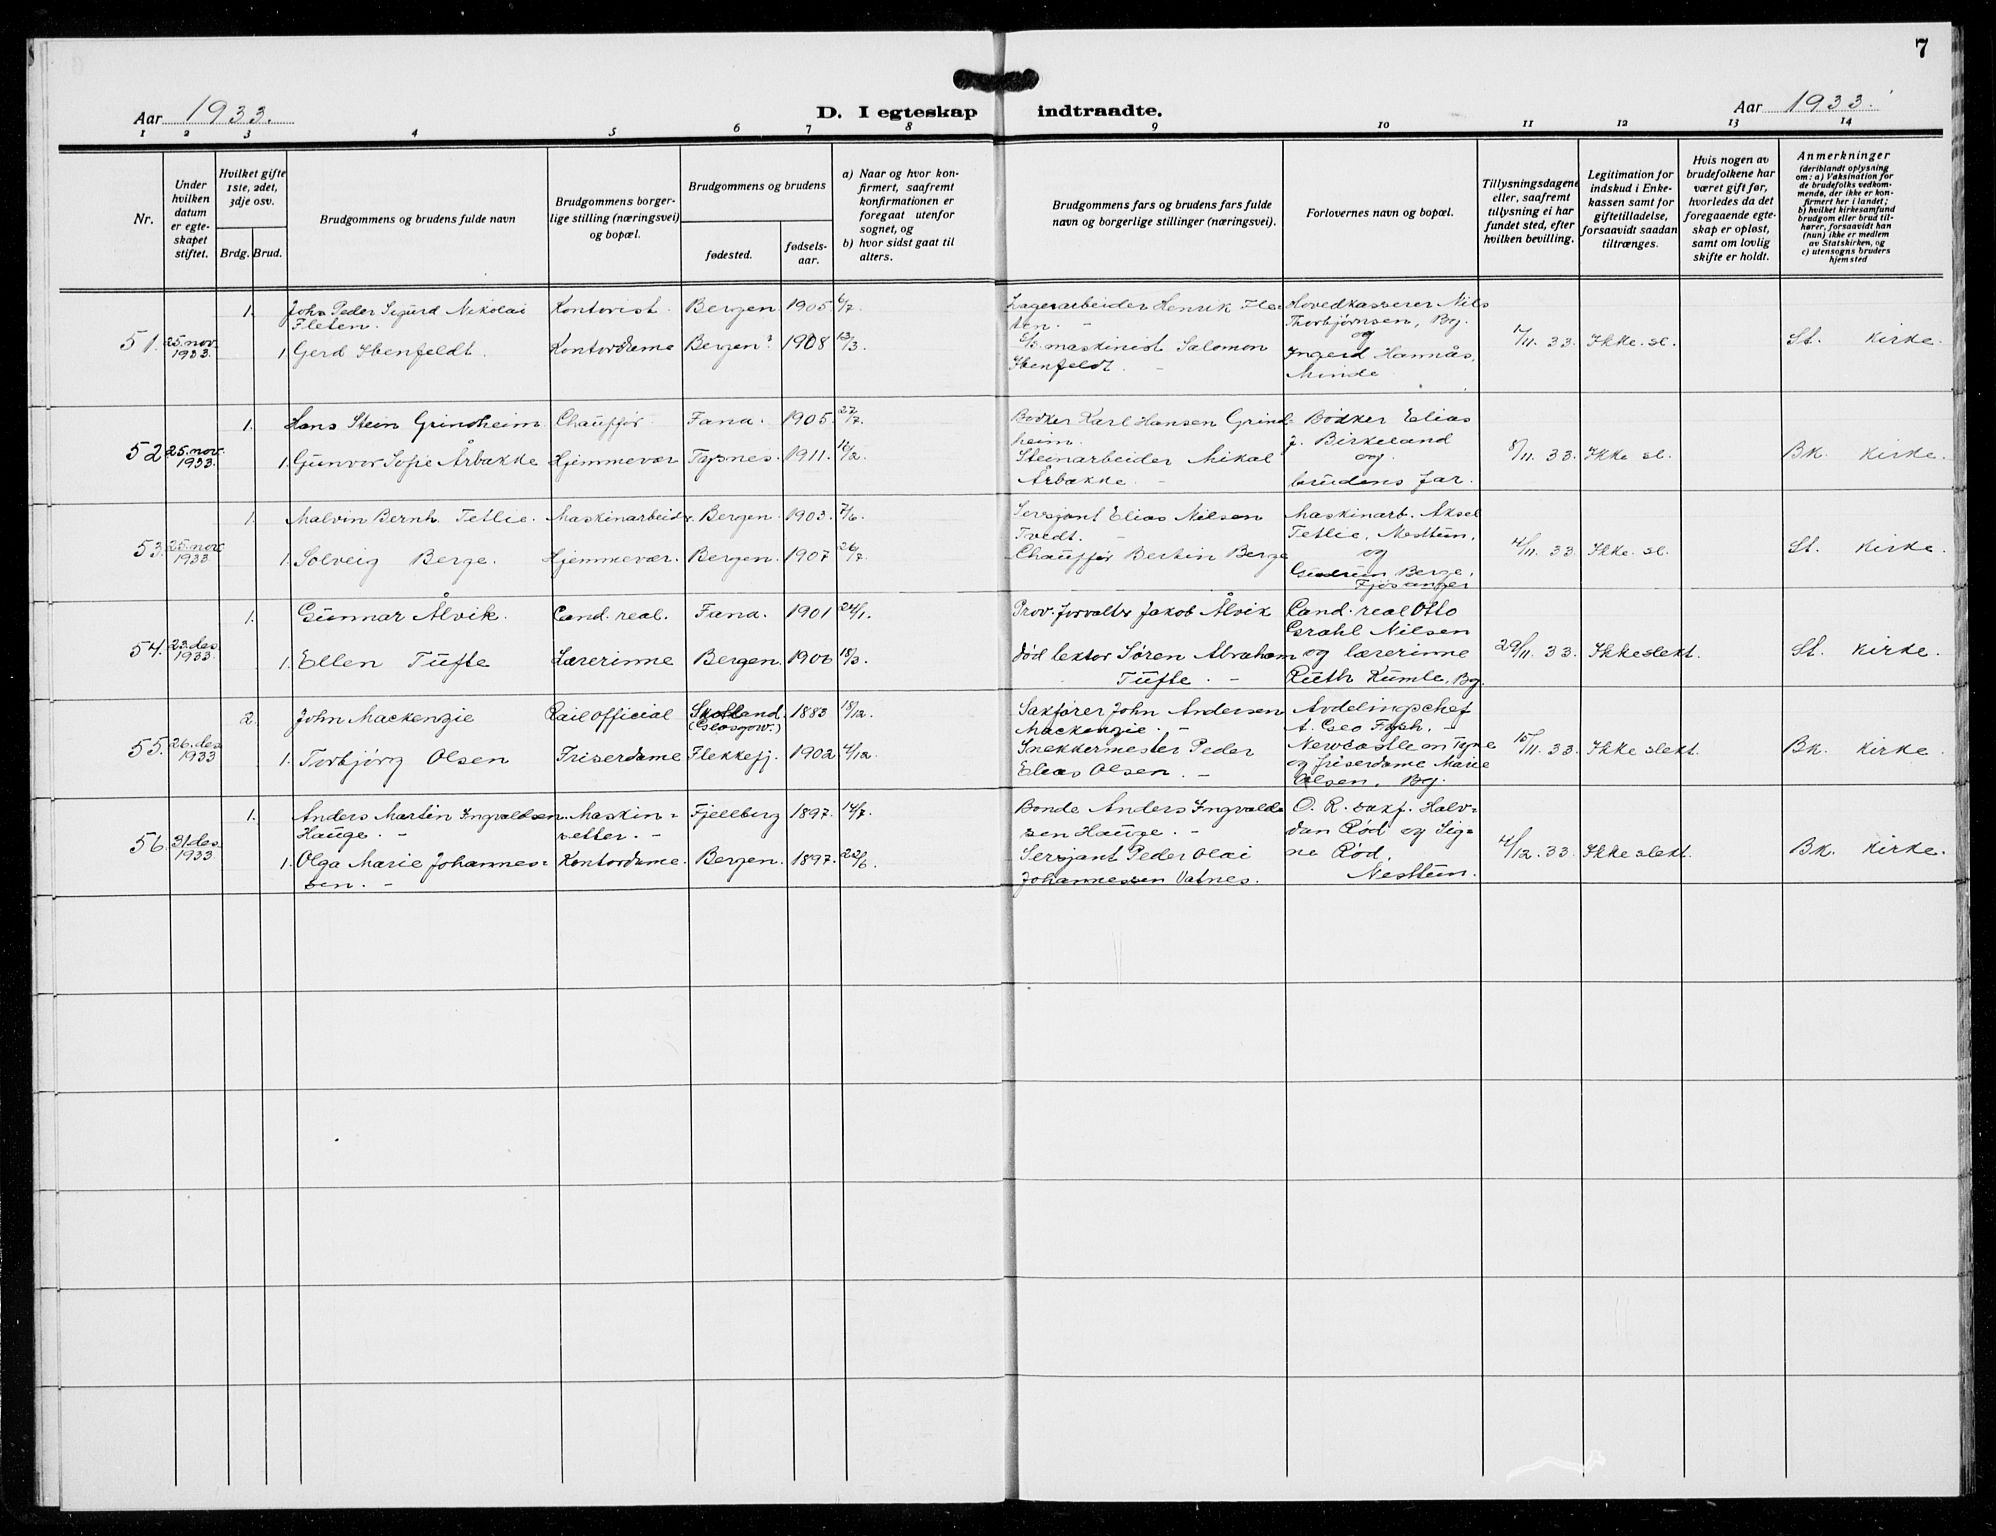 7
Aar 1933.
D. I egteskap indtraadte.
Aar 1933.
1 2 3 4 5 6 7 8 9 10 11 12 13 14
Nr.
Under
hvilken
datum
er egte-
skapet
stiftet.
Hvilket gifte
1ste, 2det,
3dje osv.
Brdg. Brud.
Brudgommens og brudens fulde navn
Brudgommens borger-
lige stilling (næringsvei)
og bopæl.
Brudgommens og brudens
fødested.
fødsels-
aar.
a) Naar og hvor kon-
firmert, saafremt
konfirmationen er
foregaat utenfor
sognet, og
b) hvor sidst gaat til
alters.
Brudgommens fars og brudens fars fulde
navn og borgerlige stillinger (næringsvei).
Forlovernes navn og bopæl.
Tillysningsdagene
eller, saafremt
tillysning ei har
fundet sted, efter
hvilken bevilling.
Legitimation for
indskud i Enke-
kassen samt for
giftetilladelse,
forsaavidt saadan
tiltrænges.
Hvis nogen av
brudefolkene har
været gift før,
hvorledes da det
foregaaende egte-
skap er opløst,
samt om lovlig
skifte er holdt.
Anmerkninger
(deriblandt oplysning
om: a) Vaksination for
de brudefolks vedkom-
mende, der ikke er kon-
firmert her i landet;
b) hvilket kirkesamfund
brudgom eller brud til-
hører, forsaavidt han
(hun) ikke er medlem
av Statskirken, og
c) utensogns bruders
hjemsted
51. 25. nov. 1933.
1. John Peder Sigurd Nikolai
Fleten.
Kontorist. Bergen 1905 6/7.
1 Gerd Ibenfeldt. Kontordame Bergen 1908 13/3.
Lagerarbeider Henrik Fle-
ten. -
S/s. maskinist Salomon
Ibenfeldt. -
Hovedkasserer Nils
Thorbjørnsen, Bg.
og
Ingerd Hannås,
Minde
17/11. 33. Ikke. sl. St. Kirke.
52 25. nov. 1933.
1. Hans Stein Grindheim. Chauffør. Fana. 1905. 27/7.
1. Gunvor Sofie Årbakke Hjemmevær Tysnes. 1911. 16/2.
Bødker Karl Hansen Grind-
heim.
Steinarbeider Mikal
Årbakke. -
Bødker Elias
J. Birkeland
og
brudens far.
8/11. 33. Ikke sl. Bk. Kirke.
53. 25. nov. 1933.
1. Malvin Bernh. Tetlie. Maskinarbeider. Bergen. 1903. 7/6.
1. Solveig Berge. Hjemmevær. Bergen. 1907 26/7.
Sersjant Elias Nilsen
Tvedt. -
Chauffør Bertin Berge
Maskinarb. Aksel
Tetlie, Nesttun,
og
Gudrun Berge,
Fjøsanger
4/11. 33. Ikke. sl. St. Kirke.
54. 23. des. 1933.
1. Gunnar Ålvik. Cand. real. Fana. 1901 24/1.
1. Ellen Tufte Lærerinne Bergen. 1906 18/3.
Prov. forvalter Jakob Ålvik
død lektor Søren Abraham
Tufte. -
Cand. real Otto
Grahl Nilsen
og lærerinne
Ruth Kumle, Bg.
29/11. 33. Ikke slekt. St. Kirke.
55. 26. des. 1933
2. John Mackenzie Rail official Skotland. (Glasgow.) 1883 18/12.
1. Torbjørg Olsen Friserdame Flekkefj. 1902 4/12.
Sakfører John Andersen
Mackenzie. -
Snekkermester Peder
Elias Olsen. -
Avdelingschef
A. Geo Fysh, -
Newcastle on Tyne
og friserdame Marie
Olsen, Bg.
15/11. 33. Ikke slekt. Bk. Kirke.
56. 31. des. 1933.
1. Anders Martin Ingvaldsen
Hauge. -
Maskin-
setter. -
Fjellberg 1897. 14/7.
1. Olga Marie Johannes-
sen. -
Kontordame. Bergen. 1897. 22/6.
Bonde Anders Ingvald-
sen Hauge. -
Sersjant Peder Olai
Johannessen Vatnes.
O. R. sakf. Halv-
dan Rød og Sig-
ne Rød,
Nesttun.
4/12. 33. Ikke slekt. Bk. Kirke.